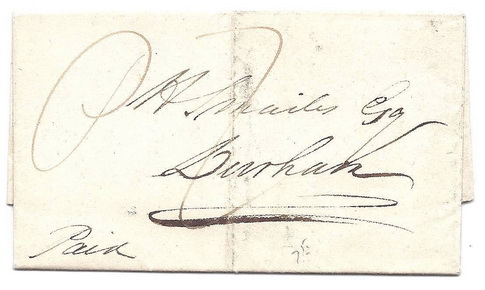 H Smailes Esq
Durham
Paid